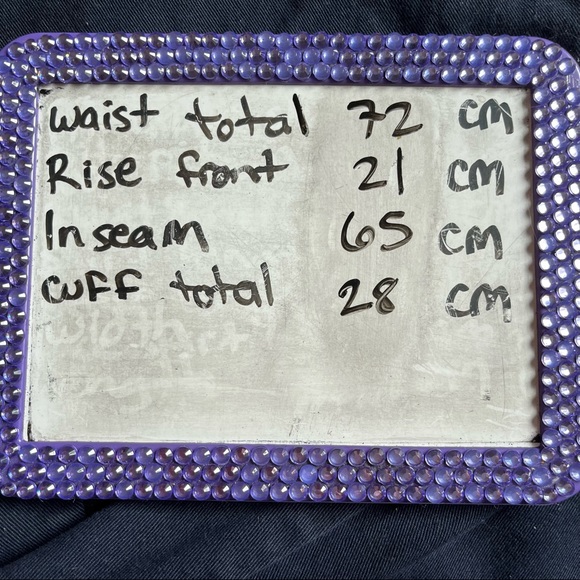 Waist total 72 cm
Rise front 21 cm
Inseam 65 cm
cuff total 28 cm